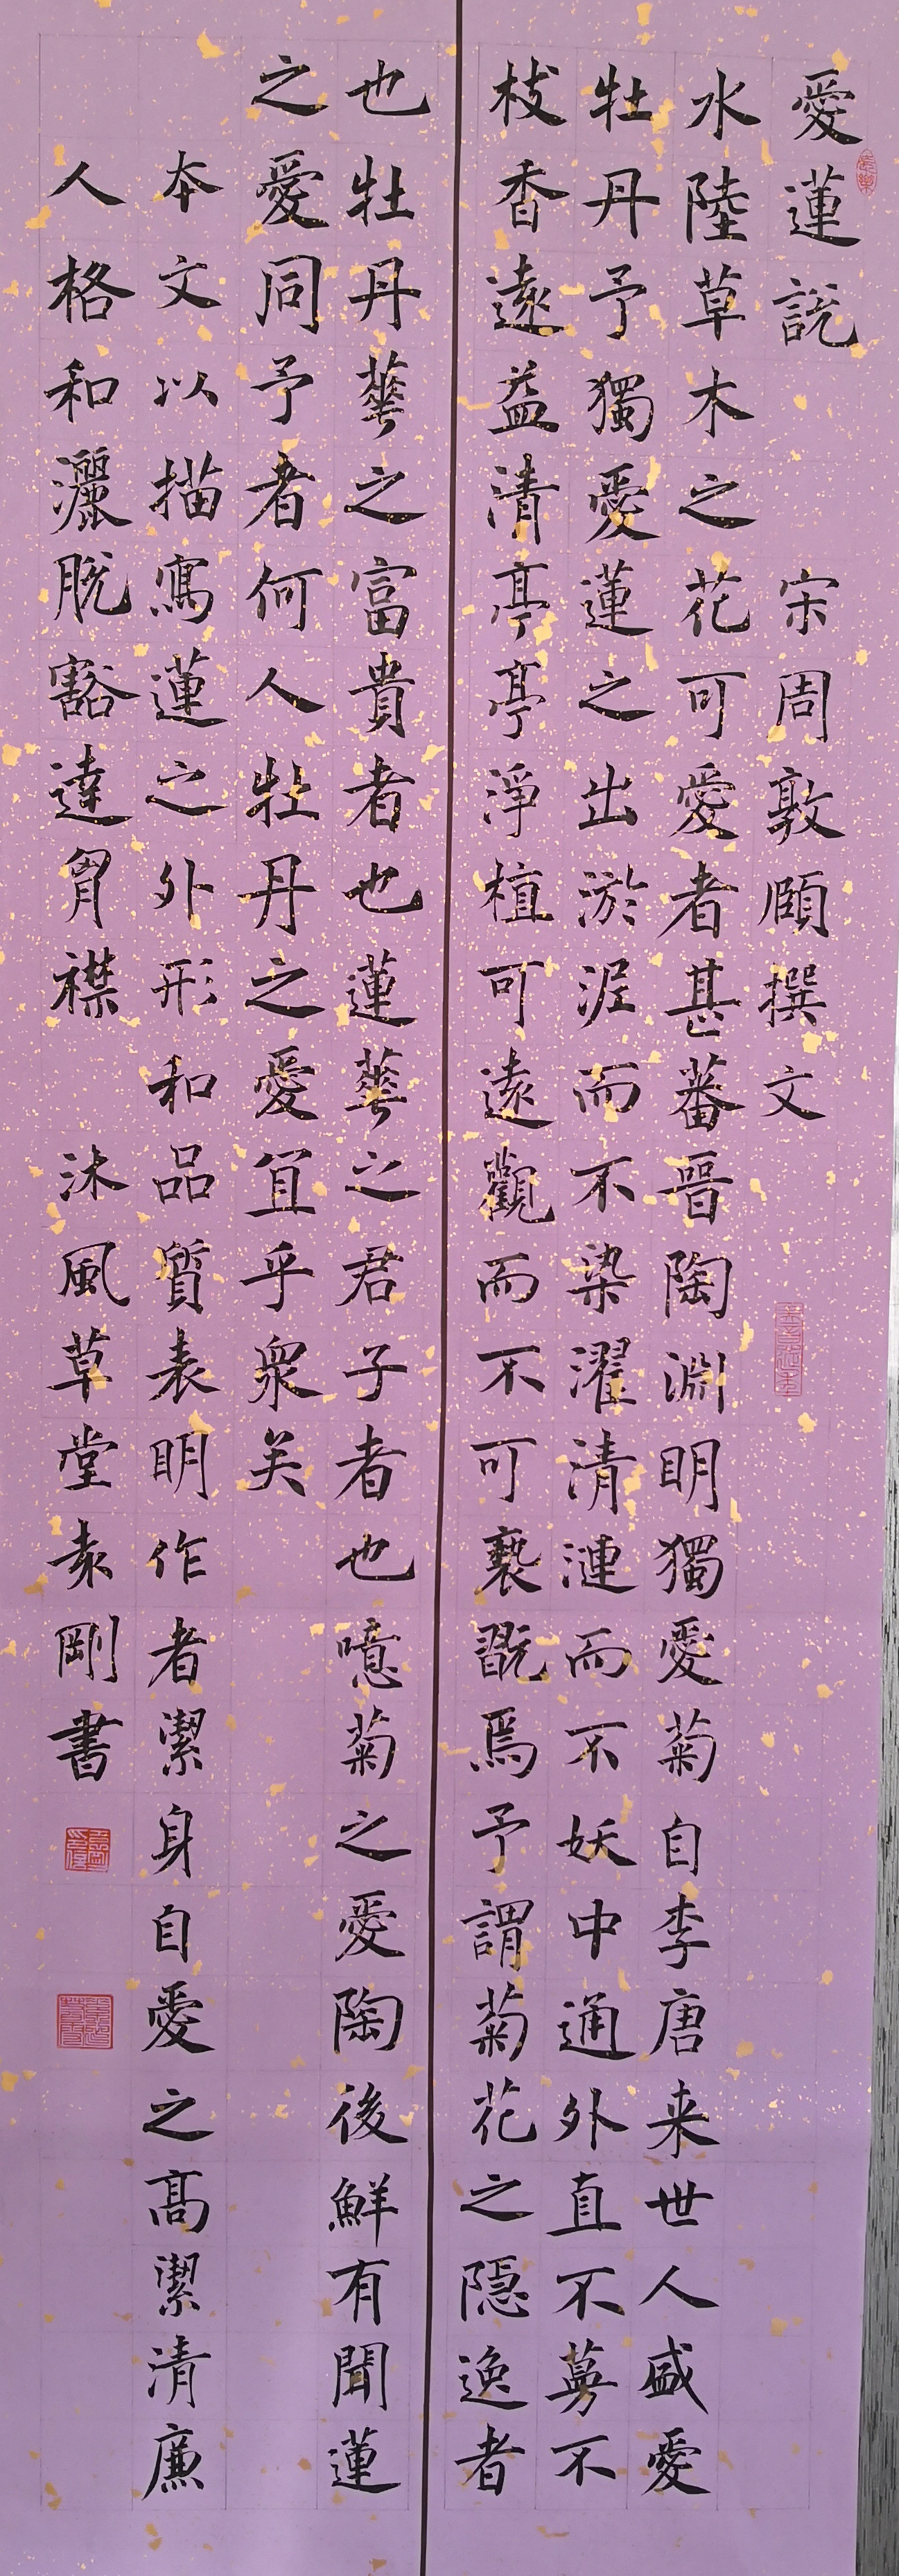 愛蓮説 宋周敦頤撰文
水陸草木之花可愛者甚蕃晉陶淵明獨愛菊自李唐来世人盛愛
牡丹予獨愛蓮之出淤泥而不染濯清漣而不妖中通外直不蔓不
枝香遠益清亭亭淨植可遠觀而不可褻翫焉予謂菊花之隱逸者
也牡丹華之富貴者也蓮華之君子者也噫菊之愛陶後鮮有聞蓮
之愛同予者何人牡丹之愛宜乎衆矣
本文以描寫蓮之外形和品質表明作者潔身自愛之高潔清廉
人格和灑脱豁達胷襟 沐風草堂袁剛書